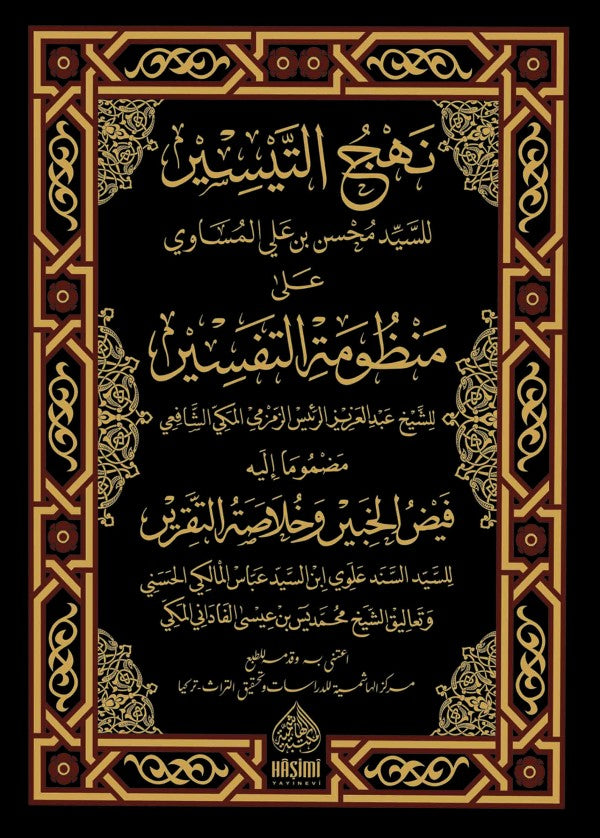 نَهْجُ التَّيْسِيْر
للسَّيِّد مُحْسن بن عَلي المُسَاوي
عَلىٰ
مَنْظُومَةِ التَّفْسِيْر
للشَّيْخ عَبد العَزيز الرَّئيس الزمزمي المَكيّ الشَّافِعي
مَضْمُومًا إِلَيْه
فَيْضُ الخَبِيْر وَخُلَاصَةُ التَّقْرِيْر
للسَّيد السَّنَد عَلَوي ابن السَّيد عَبَّاس المَالِكي الحَسَني
وَتَعاليق الشَّيخ محمَّد يسٓ بن عِيسىٰ الفَادَاني المَكي
اعتنى به وقدمه للطبع
مركز الهاشمية للدراسات وتحقيق التراث - تركيا
المكتبة الهاشمية
HÂŞİMÎ
YAYINEVİ